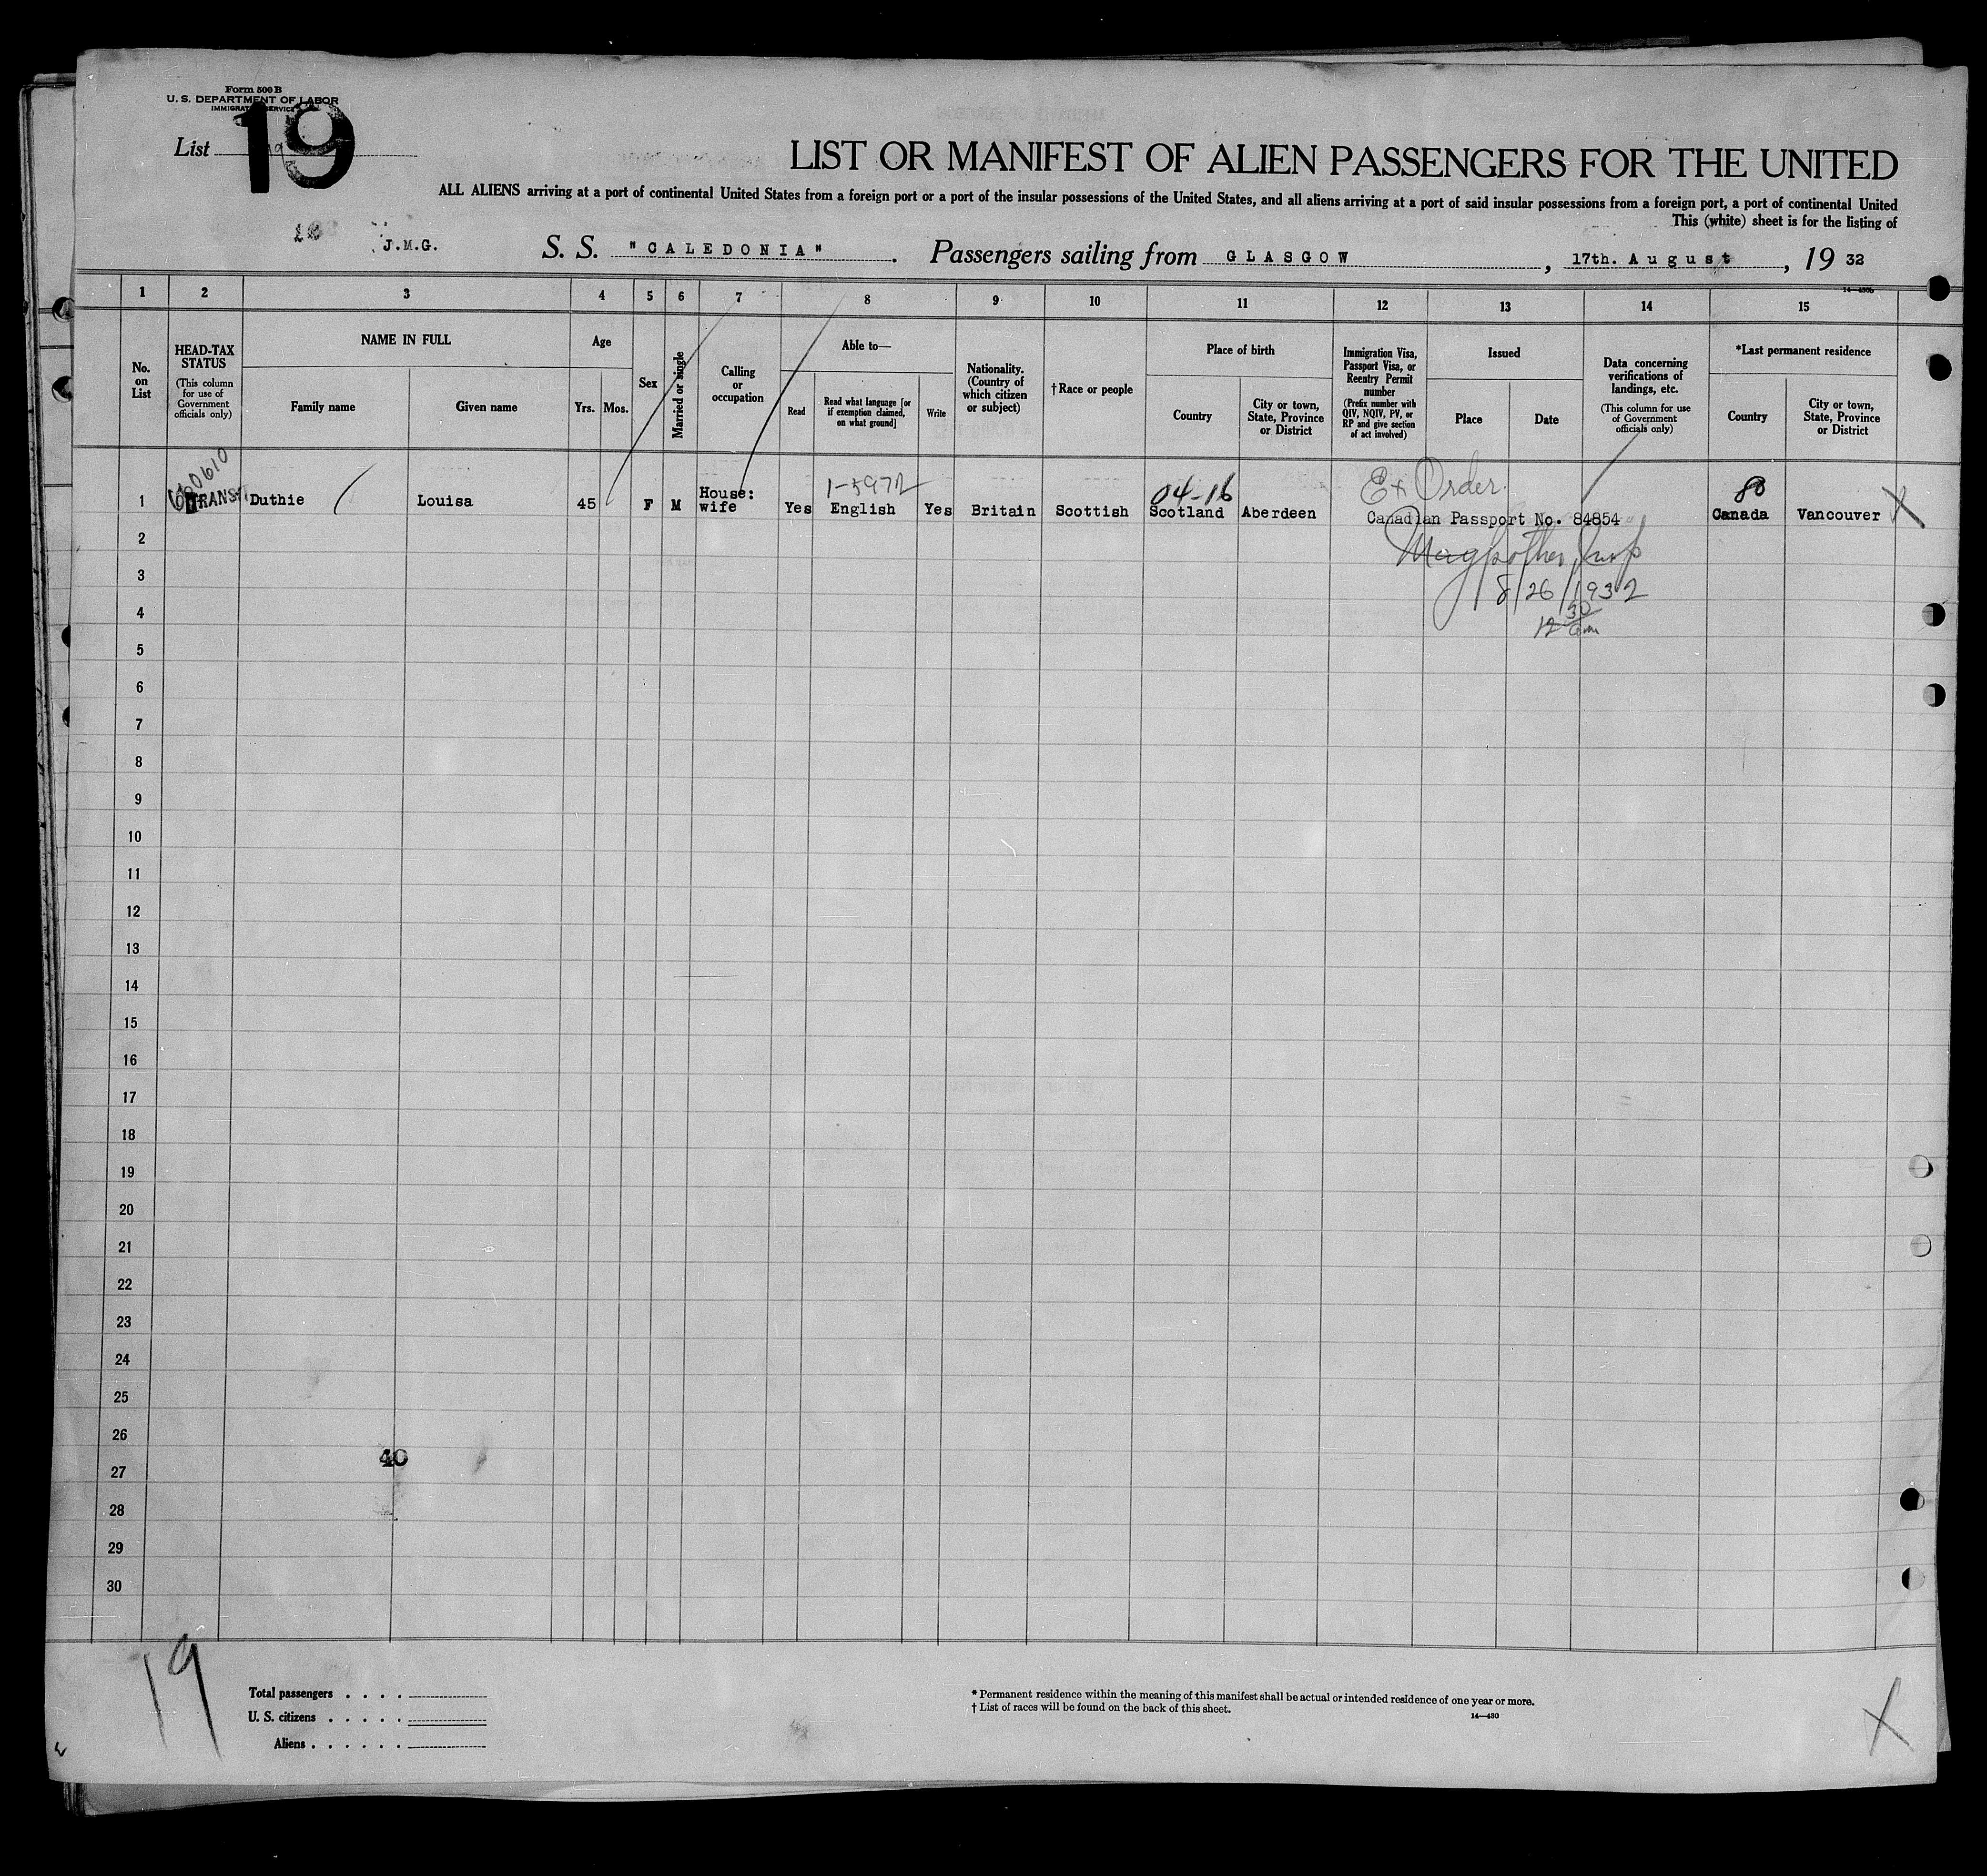 Form 500 B
U. S. DEPARTMENT OF LABOR
IMMIGRATION SERVICE
List 19
19
LIST OR MANIFEST OF ALIEN PASSENGERS FOR THE UNITED
ALL ALIENS arriving at a port of continental United States from a foreign port or a port of the insular possessions of the United States, and all aliens arriving at a port of said insular possessions from a foreign port, a port of continental United
This (white) sheet is for the listing of
J.M.G. S. S. "CALEDONIA". Passengers sailing from GLASGOW, 17th. August, 19 32
14—430b
1 2 3 4 5 6 7 8 9 10 11 12 13 14 15
No. on List
HEAD-TAX STATUS
(This column for use of Government officials only)
NAME IN FULL
Family name
Given name
Age
Yrs.
Mos.
Sex
Married or single
Calling or occupation
Able to—
Read
Read what language [or if exemption claimed, on what ground]
Write
Nationality. (Country of which citizen or subject)
†Race or people
Place of birth
Country
City or town, State, Province or District
Immigration Visa, Passport Visa, or Reentry Permit number
(Prefix number with QIV, NQIV, PV, or RP and give section of act involved)
Issued
Place
Date
Data concerning verifications of landings, etc.
(This column for use of Government officials only)
*Last permanent residence
Country
City or town, State, Province or District
1-5972 04-16 Ex Order 80
1 TRANSIT Duthie Louisa 45 F M House: wife Yes English Yes Britain Scottish Scotland Aberdeen Canadian Passport No. 84854 Canada Vancouver X
2
3
8/26/1932
4
12 30
5
6
7
8
9
10
11
12
13
14
15
16
17
18
19
20
21
22
23
24
25
26
40
27
28
29
30
19
Total passengers . . . .
U. S. citizens . . . . .
Aliens . . . . . .
* Permanent residence within the meaning of this manifest shall be actual or intended residence of one year or more.
† List of races will be found on the back of this sheet.
14—430
X